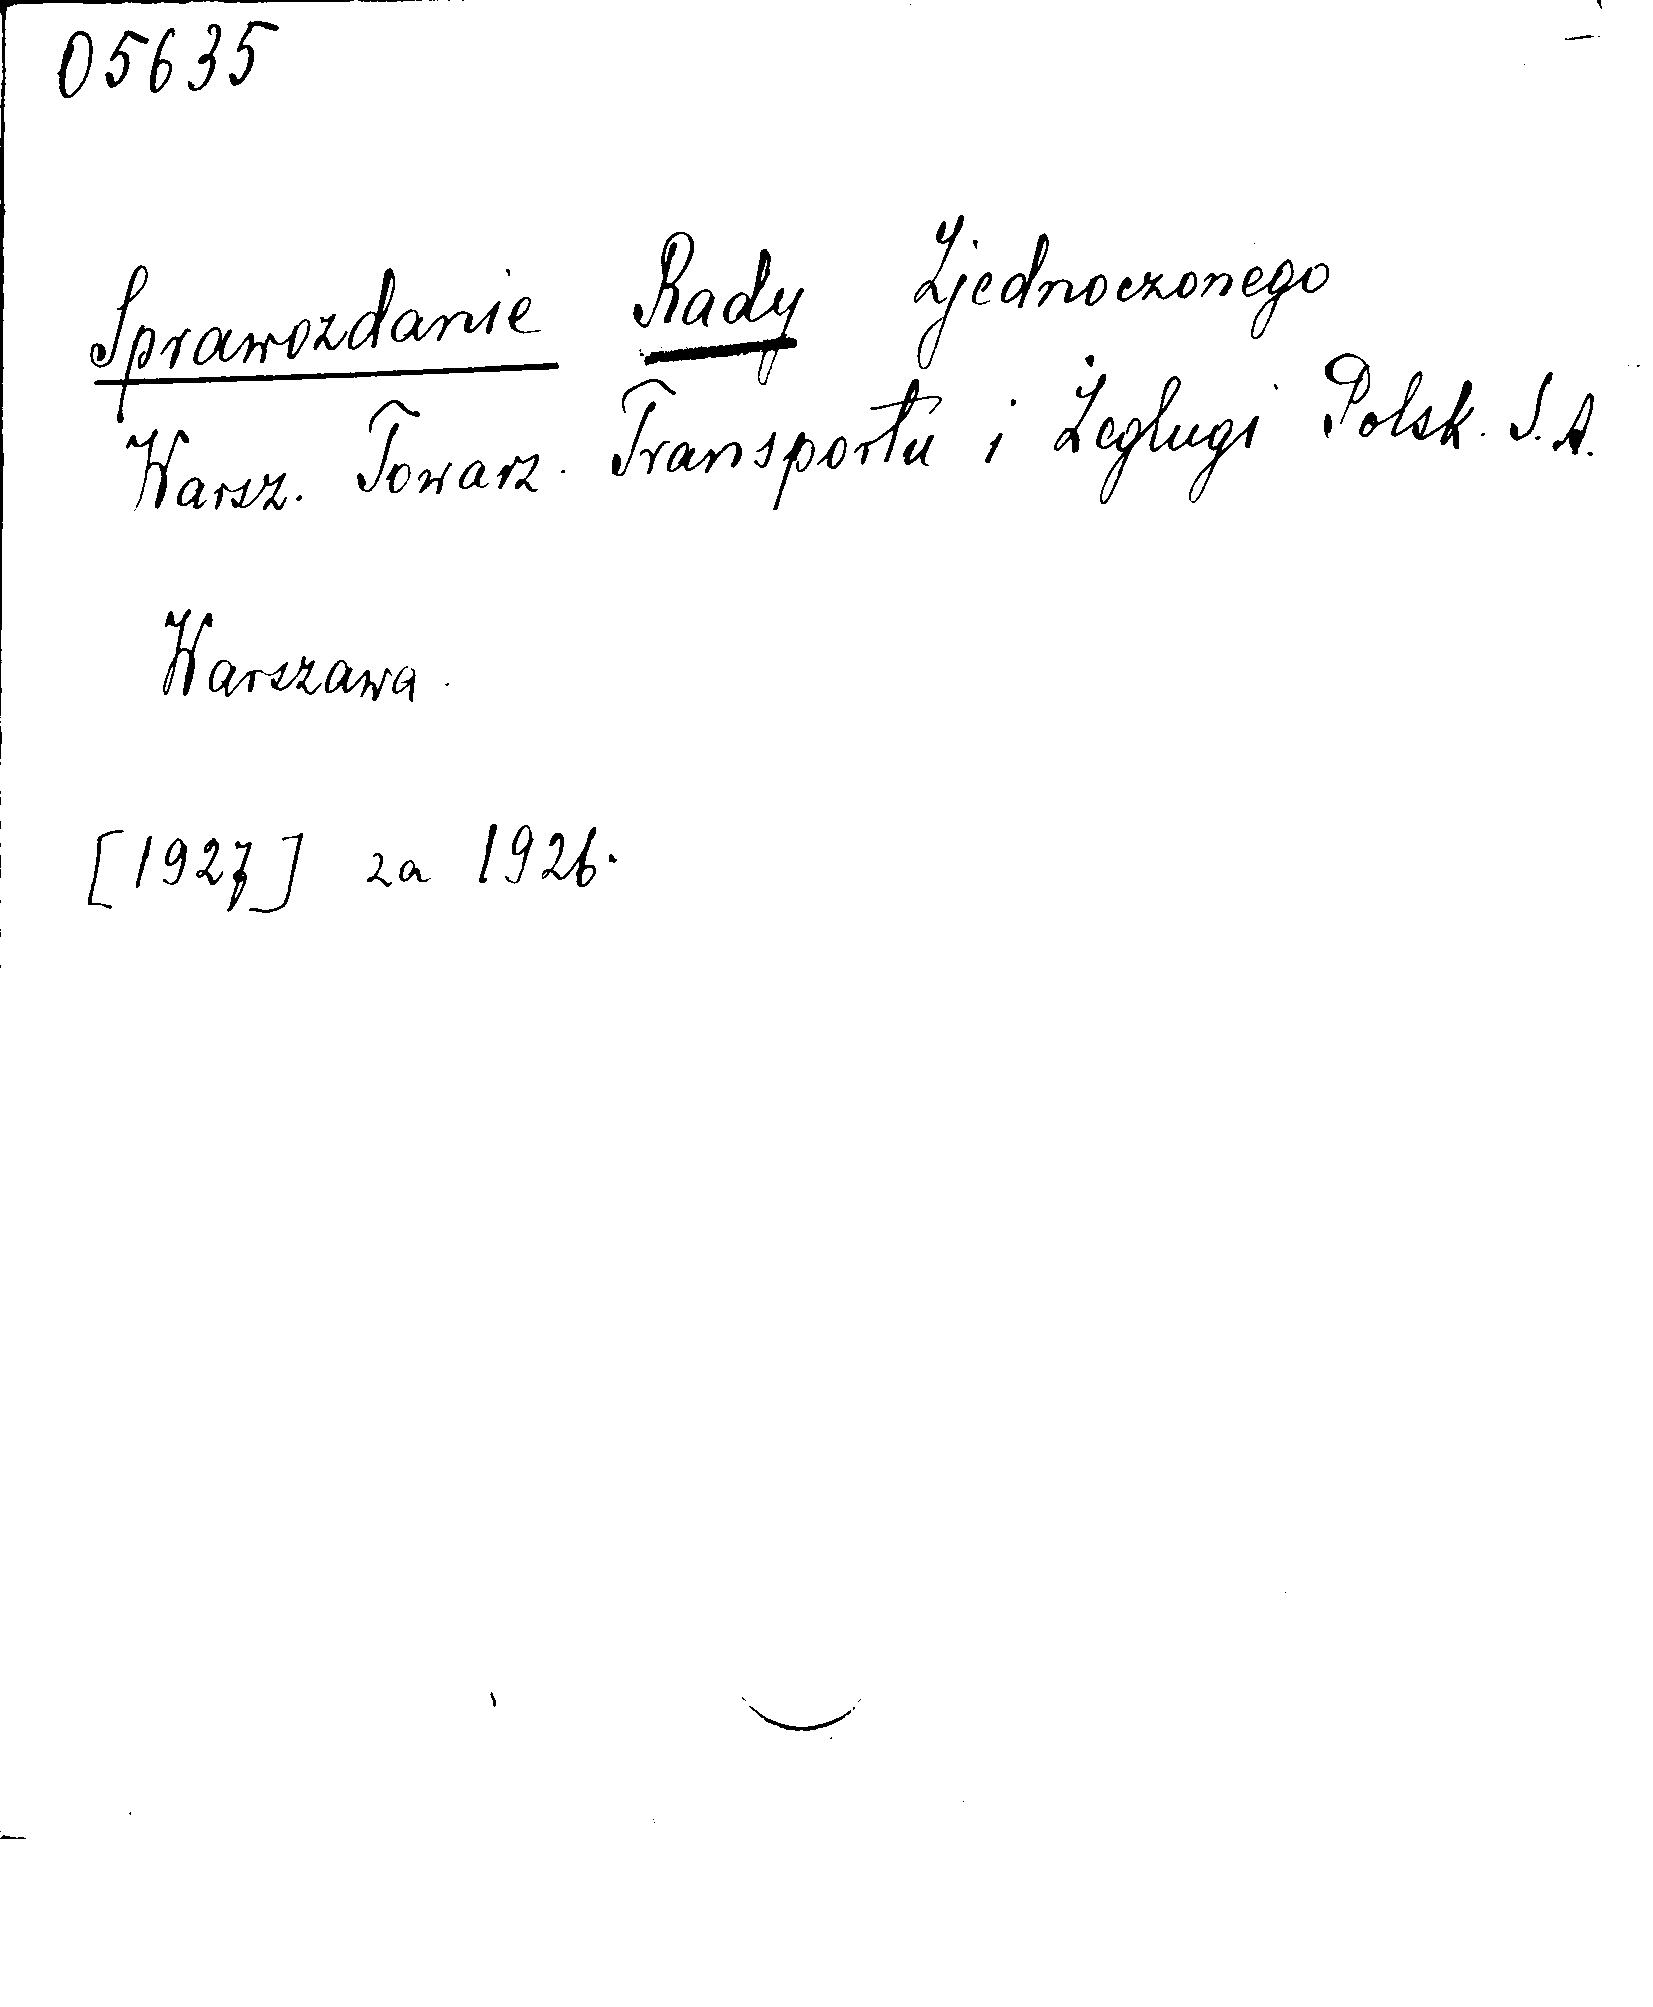 05635
Sprawozdanie Rady Zjednoczonego
Warsz. Towarz. Transportu i Żeglugi Polsk. S. A.
Warszawa.
[1927] za 1926.